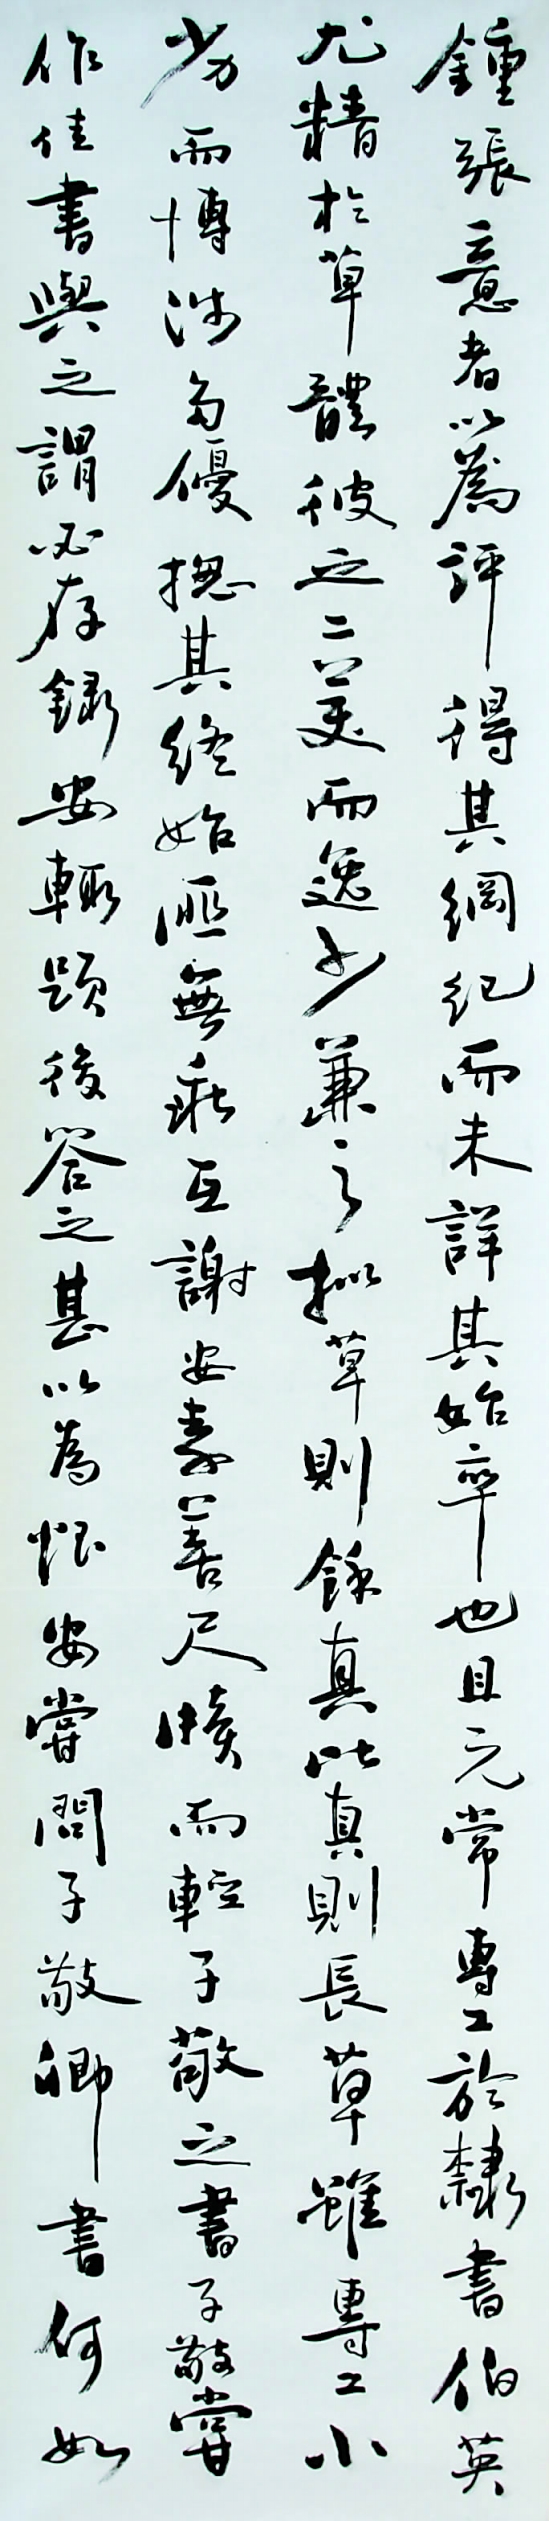 鍾張意者以為評得其綱紀而未詳其始卒也且元常專工於隸書伯英
尤精於草體彼之二美而逸少兼之擬草則餘真比真則長草雖專工小
劣而博涉多優摠其終始匪無乖互謝安素善尺牘而輕子敬之書子敬嘗
作佳書與之謂必存錄安輒題後答之甚以為恨安嘗問子敬卿書何如